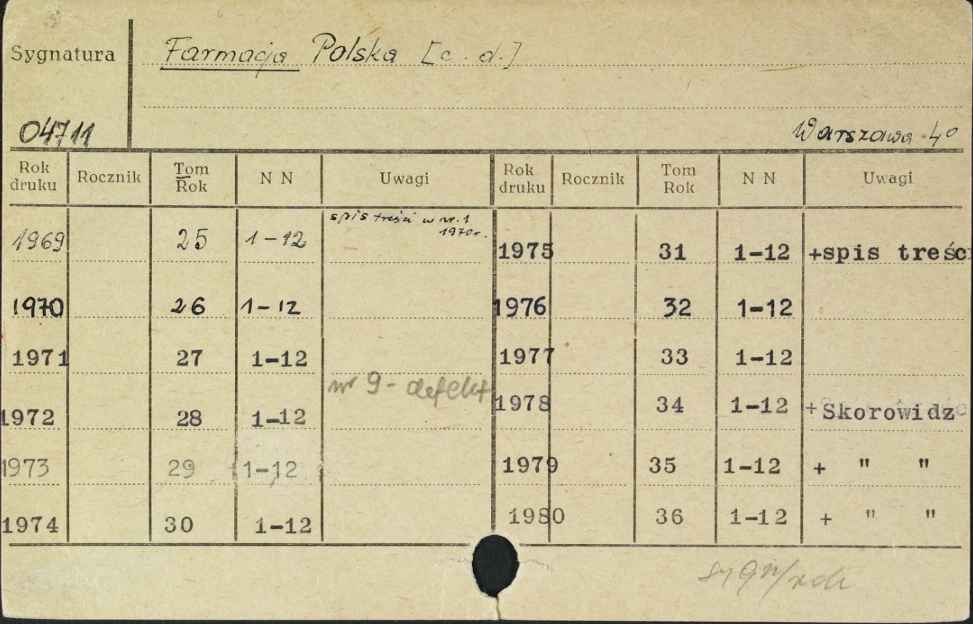 Sygnatura
Farmacja Polska [c.d.]
04711
Warszawa 4°
Rok druku Rocznik Tom Rok N N Uwagi Rok druku Rocznik Tom Rok N N Uwagi
1969 25 1-12 spis treści w nr. 1 1970r.
1970 26 1-12
1971 27 1-12
nr 9 - defekt
1972 28 1-12
1973 29 1-12
1974 30 1-12
1975 31 1-12 +spis treśc
1976 32 1-12
1977 33 1-12
1978 34 1-12 + Skorowidz
1979 35 1-12 + " "
1980 36 1-12 + " "